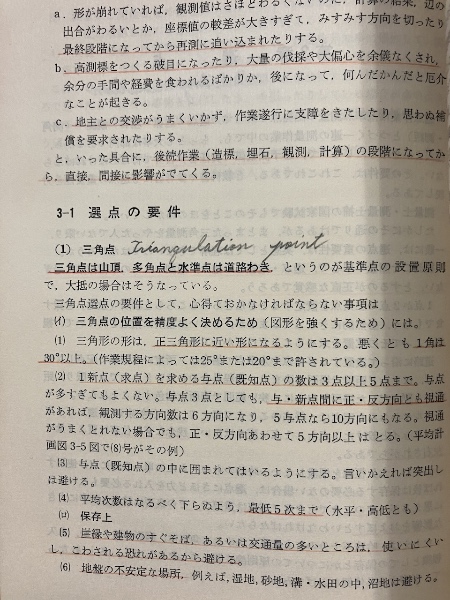 a．形が崩れていれば，観測値はさほどわるくないのに，計算の結果，辺の
出合がわるいとか，座標値の較差が大きすぎて，みすみす方向を切ったり
最終段階になってから再測に追い込まれたりする。
b．高測標をつくる破目になったり，大量の伐採や大偏心を余儀なくされ，
余分の手間や経費を食われるばかりか，後になって，何んだかんだと厄介
なことが起きる。
c．地主との交渉がうまくいかず，作業遂行に支障をきたしたり，思わぬ補
償を要求されたりする。
と，いった具合に，後続作業（造標，埋石，観測，計算）の段階になってか
ら，直接，間接に影響がでてくる。
3-1 選点の要件
(1) 三角点 Triangulation point
三角点は山頂，多角点と水準点は道路わき，というのが基準点の設置原則
で，大抵の場合はそうなっている。
三角点選点の要件として，心得ておかなければならない事項は
(イ) 三角点の位置を精度よく決めるため（図形を強くするため）には。
(1) 三角形の形は，正三角形に近い形になるようにする。悪くとも1角は
30°以上。（作業規程によっては25°または20°まで許されている。）
(2) 1新点（求点）を求める与点（既知点）の数は3点以上5点まで。与点
が多すぎてもよくない。与点3点としても，与・新点間に正・反方向とも視通
があれば，観測する方向数は6方向になり，5与点なら10方向にもなる。視通
がうまくとれない場合でも，正・反方向あわせて5方向以上はとる。（平均計
画図3-5図で(8)号がその例）
(3) 与点（既知点）の中に囲まれてはいるようにする。言いかえれば突出し
は避ける。
(4) 平均次数はなるべく下らぬよう，最低5次まで（水平・高低とも）
(ロ) 保存上
(5) 崖縁や建物のすぐそば，あるいは交通量の多いところは，使いにくい
し，こわされる恐れがあるから避ける。
(6) 地盤の不安定な場所，例えば，湿地，砂地，溝・水田の中，沼地は避ける。